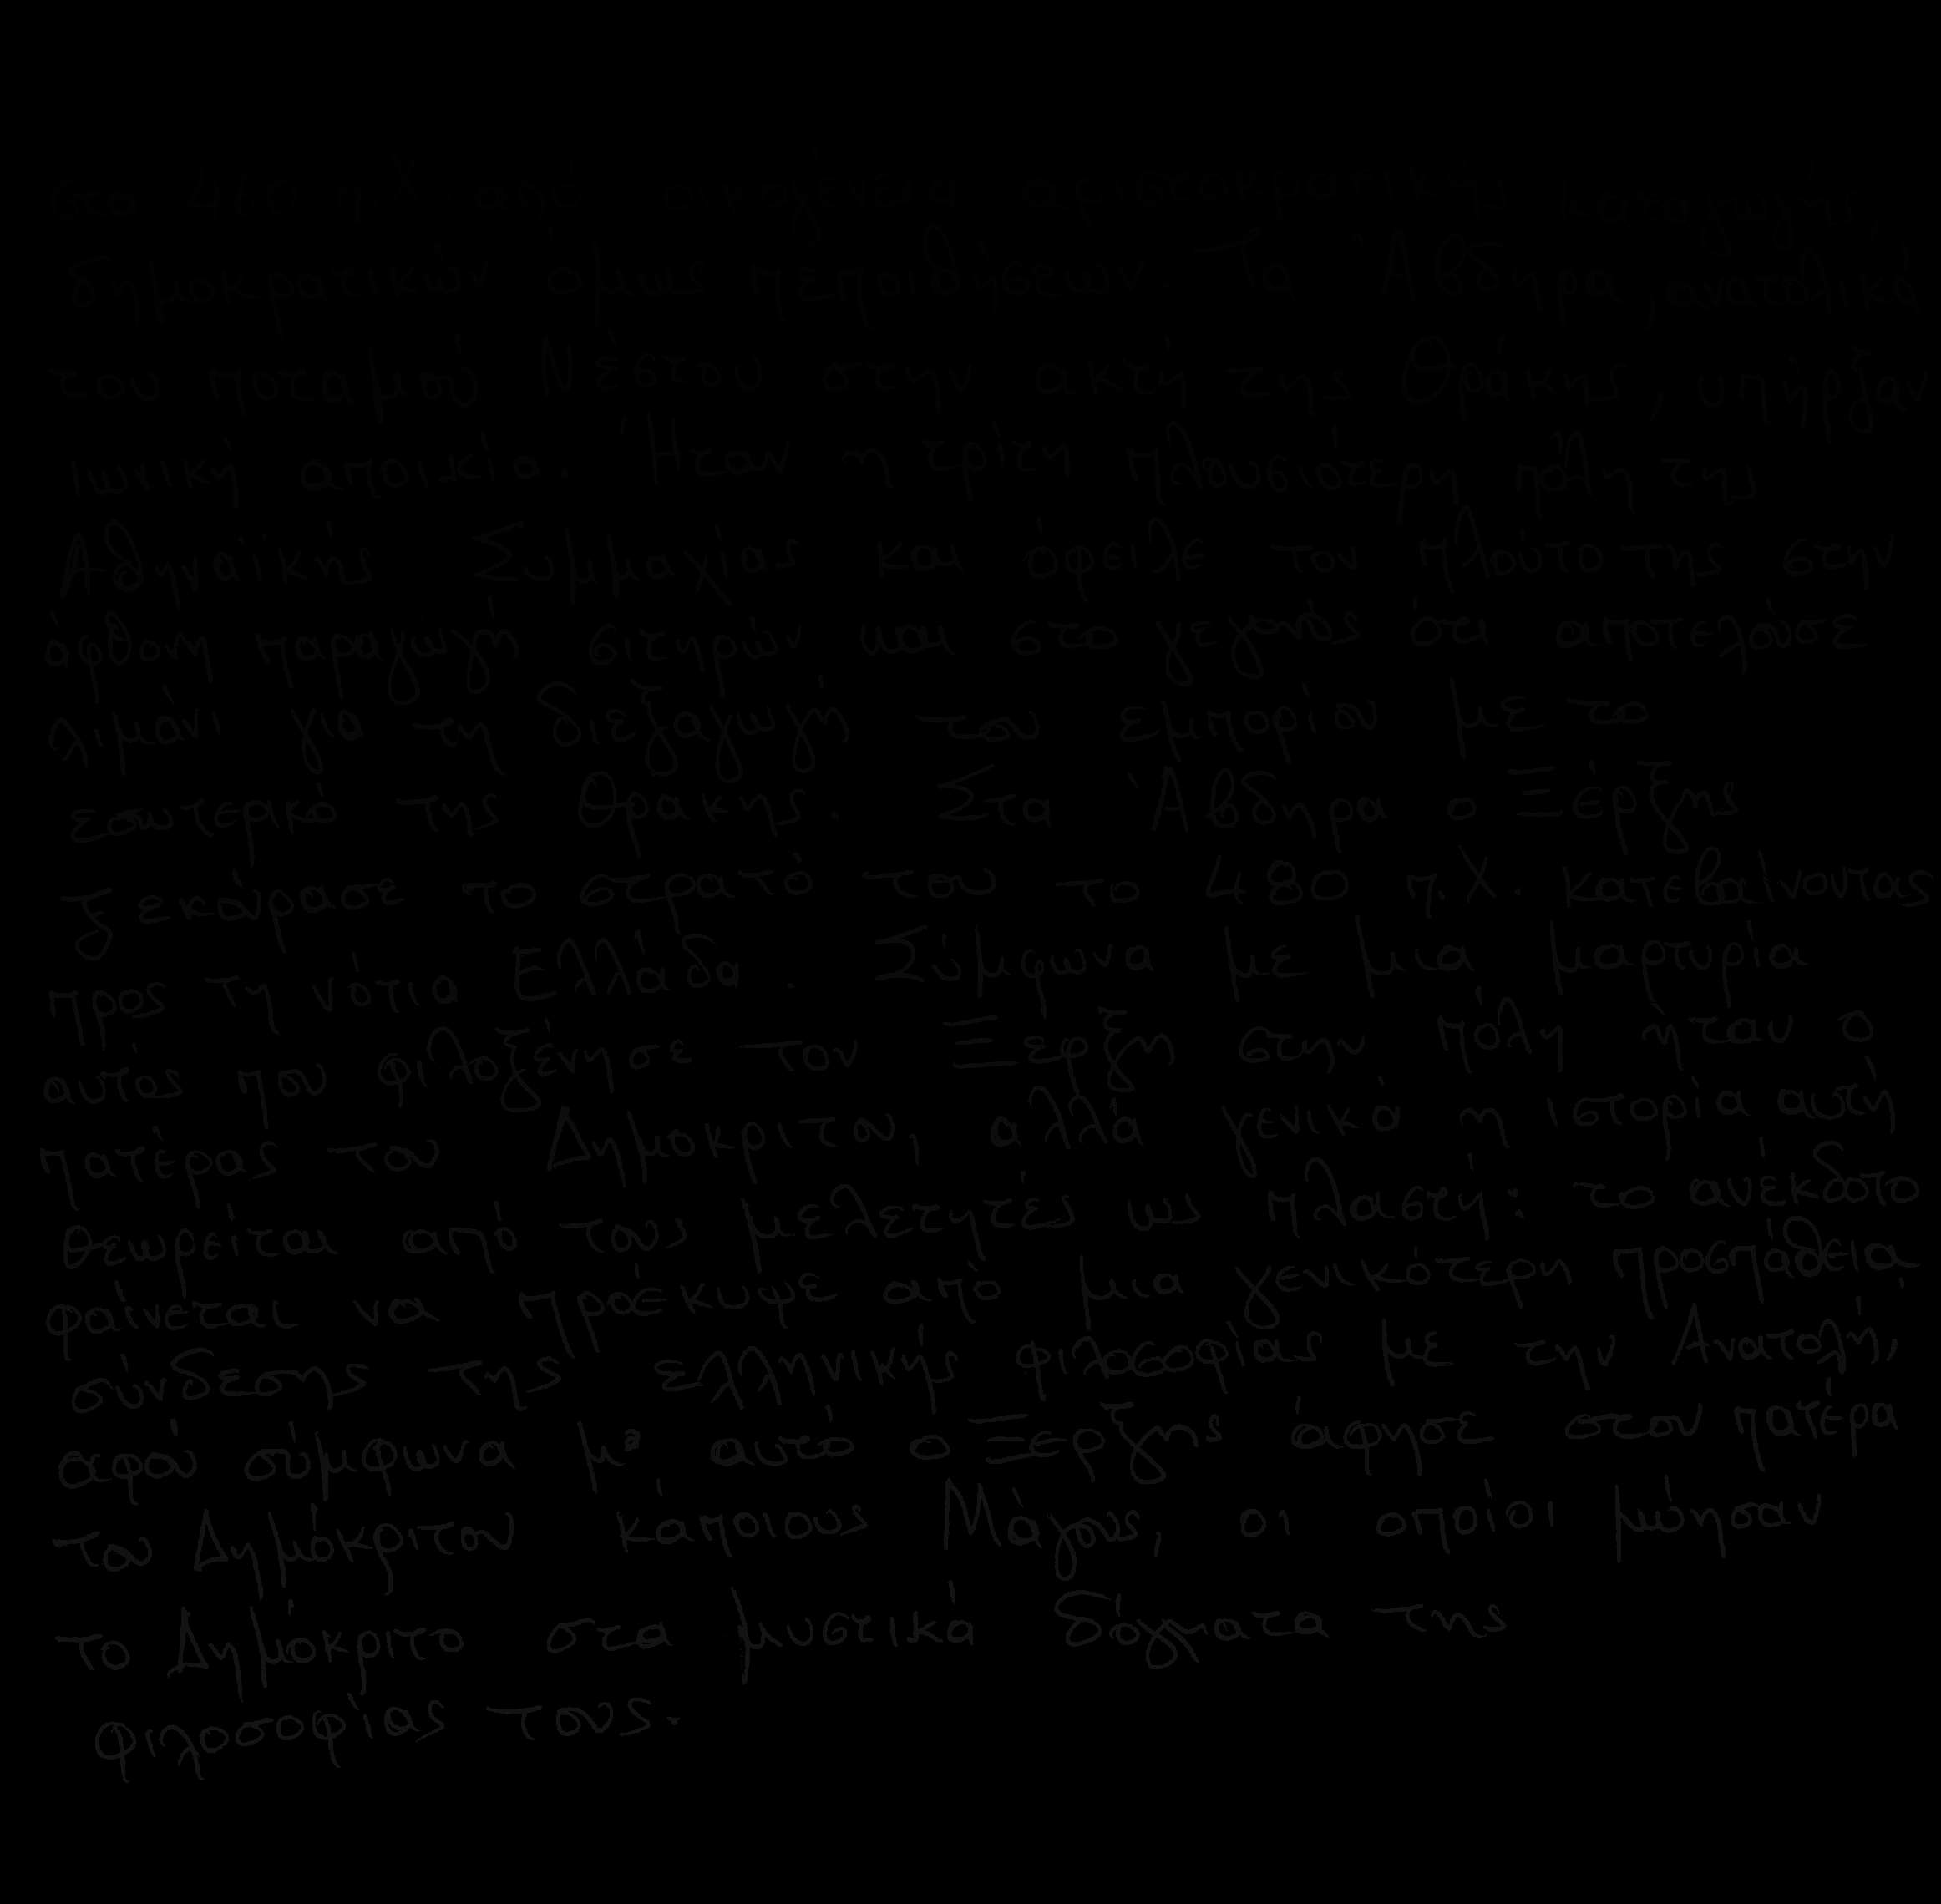 Ο Δημόκριτος γεννήθηκε στα Άβδηρα της Θράκης
στα 460 π.Χ. από οικογένεια αριστοκρατικής καταγωγής,
δημοκρατικών όμως πεποιθήσεων. Τα Άβδηρα, ανατολικά
του ποταμού Νέστου στην ακτή της Θράκης, υπήρξαν
ιωνική αποικία. Ήταν η τρίτη πλουσιότερη πόλη της
Αθηναϊκής Συμμαχίας και όφειλε τον πλούτο της στην
άφθονη παραγωγή σιτηρών και στο γεγονός ότι αποτελούσε
λιμάνι για τη διεξαγωγή του εμπορίου με το
εσωτερικό της Θρακης. Στα Άβδηρα ο Ξέρξης
ξεκούρασε το στρατό του το 480 π.Χ. κατεβαίνοντας
προς τη νότια Ελλάδα. Σύμφωνα με μια μαρτυρία
αυτός που φιλοξένησε τον Ξέρξη στην πόλη ήταν ο
πατέρας του Δημοκριτου, αλλά γενικά η ιστορία αυτή
θεωρείται από τους μελετητές ως πλαστή: το ανέκδοτο
φαίνεται να προέκυψε από μια γενικότερη προσπάθεια
σύνδεσης της ελληνικής φιλοσοφίας με την Ανατολή,
αφού σύμφωνα με αυτό ο Ξέρξης άφησε στον πατέρα
του Δημόκριτου κάποιους Μάγους, οι οποίοι μύησαν
το Δημόκριτο στα μυστικά δόγματα της
φιλοσοφίας τους.